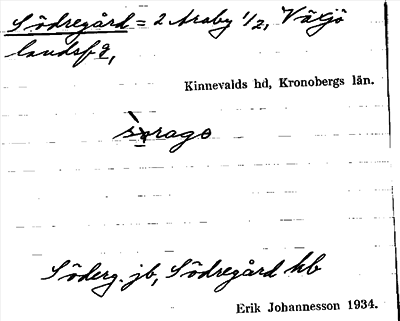 Södregård = 2 Araby 1/2, Växjö
landsf g,
Kinnevalds hd, Kronobergs län.
Söderg. jb, Södregård hb
Erik Johannesson 1934.